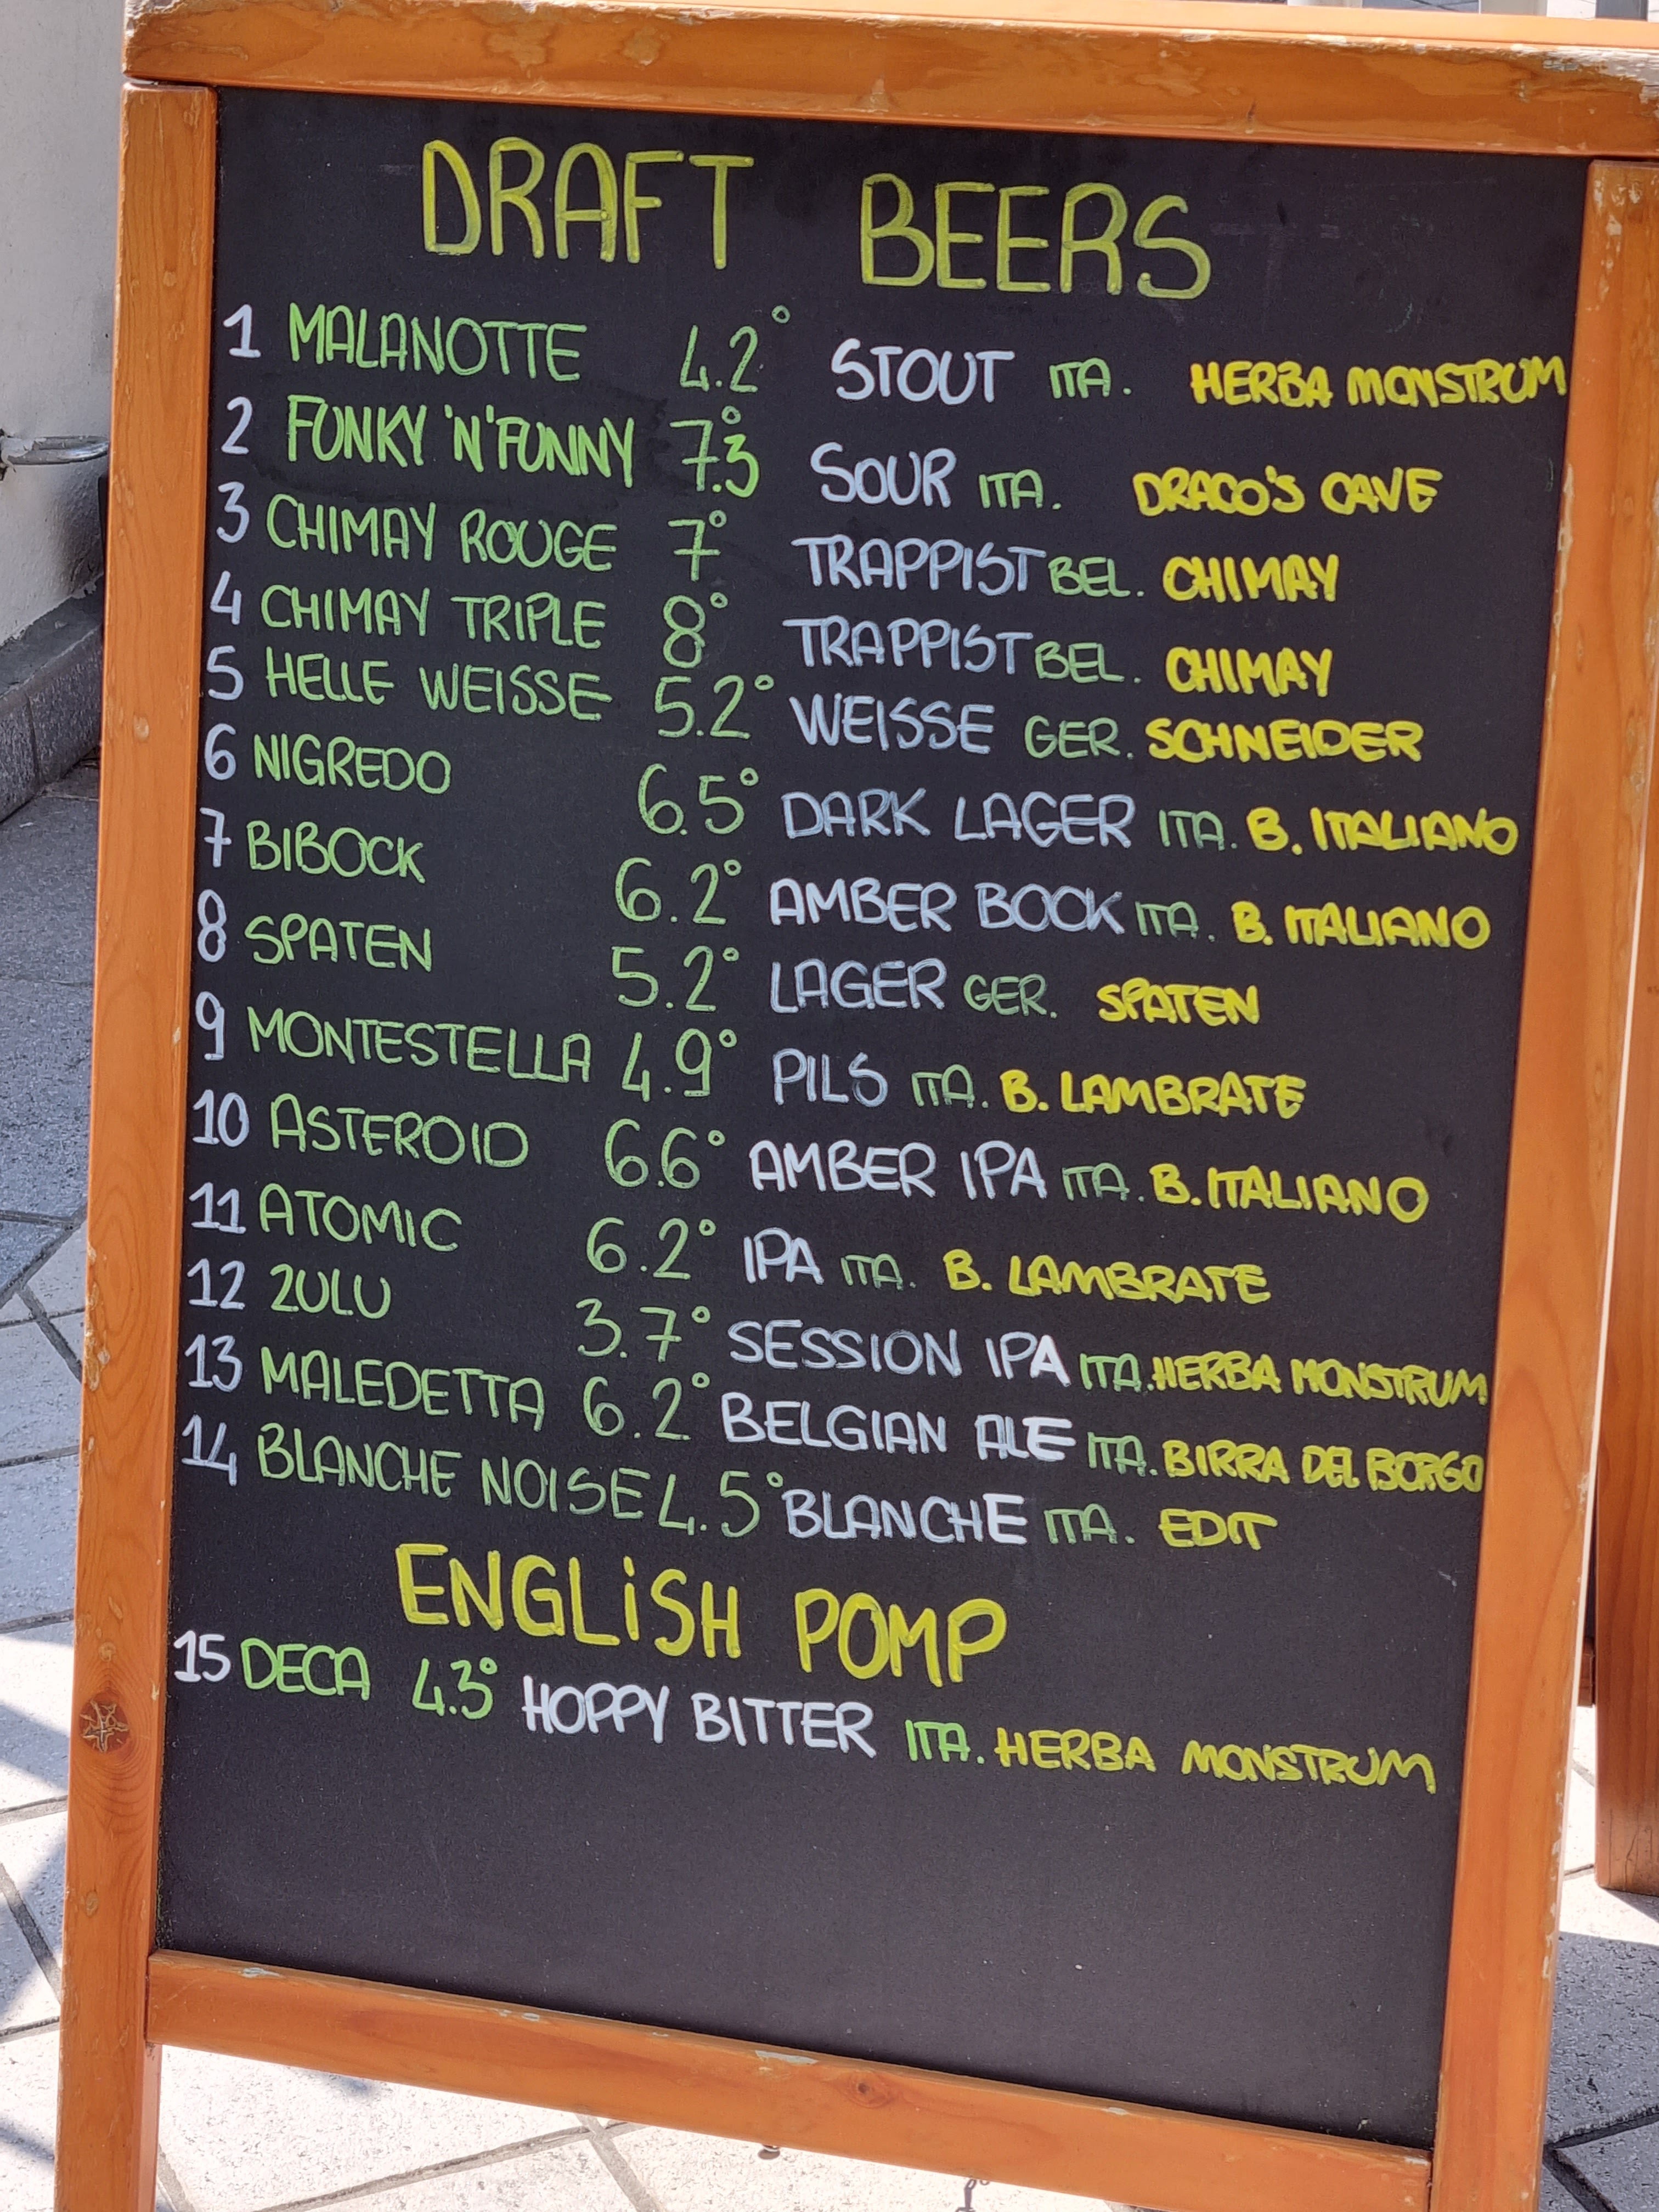 DRAFT BEERS
1 MALANOTTE 4.2° STOUT ITA. HERBA MONSTRUM
2 FUNKY 'N' FUNNY 7.3° SOUR ITA. DRACO'S CAVE
3 CHIMAY ROUGE 7° TRAPPIST BEL. CHIMAY
4 CHIMAY TRIPLE 8° TRAPPIST BEL. CHIMAY
5 HELLE WEISSE 5.2° WEISSE GER. SCHNEIDER
6 NIGREDO 6.5° DARK LAGER ITA. B. ITALIANO
7 BIBOCK 6.2° AMBER BOCK ITA. B. ITALIANO
8 SPATEN 5.2° LAGER GER. SPATEN
9 MONTESTELLA 4.9° PILS ITA. B. LAMBRATE
10 ASTEROID 6.6° AMBER IPA ITA. B. ITALIANO
11 ATOMIC 6.2° IPA ITA. B. LAMBRATE
12 ZULU 3.7° SESSION IPA ITA. HERBA MONSTRUM
13 MALEDETTA 6.2° BELGIAN ALE ITA. BIRRA DEL BORGO
14 BLANCHE NOISE 4.5° BLANCHE ITA. EDIT
ENGLISH POMP
15 DECA 4.3° HOPPY BITTER ITA. HERBA MONSTRUM